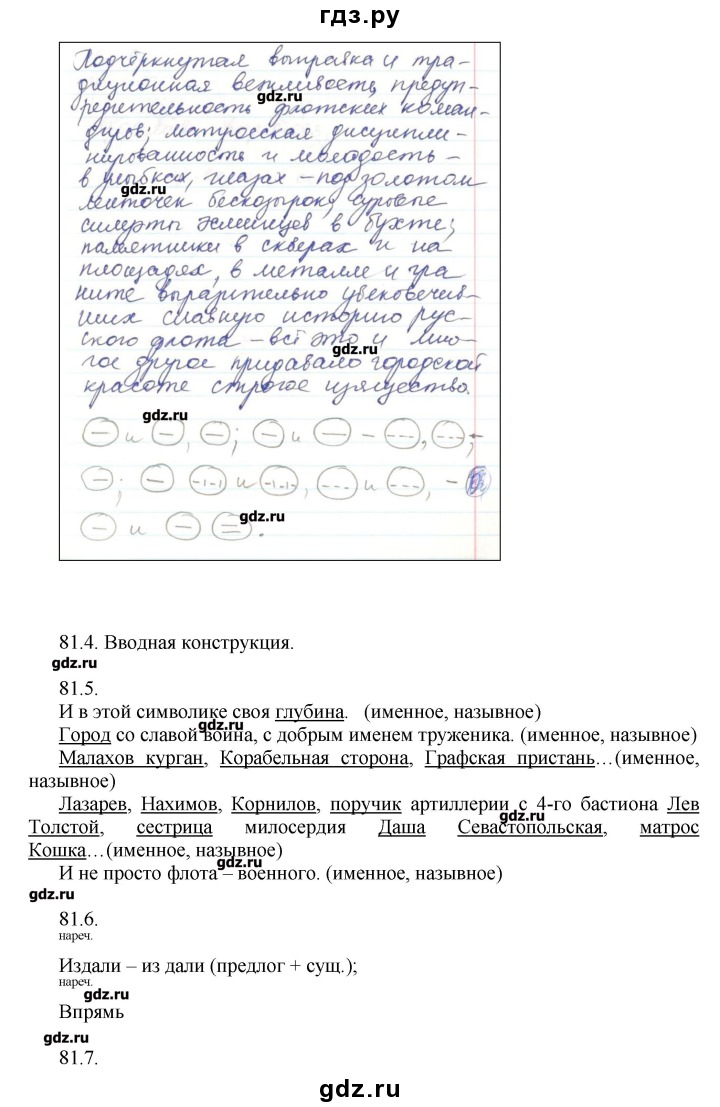 гдз.ру
Подчёркнутая выправка и тра-
диционная вежливость, предуп-
gdz.ru
редительность флотских коман-
диров; матросская дисципли-
нированность и молодость –
в улыбках, глазах – под золотом
gdz.ru
ленточек бескозырок, суровые
силуэты эсминцев в бухте;
памятники в скверах и на
площадях, в металле и гра
ните выразительно увековечив-
ших славную историю рус-
ского флота – всё это и мно-
gdz.ru
гое другое придавало городской
красоте строгое изящество.
gdz.ru
и , ; и – , ;
; и , и , –
gdz.ru
и .
81.4. Вводная конструкция.
gdz.ru
81.5.
И в этой символике своя глубина. (именное, назывное)
gdz.ru
Город со славой война, с добрым именем труженика. (именное, назывное)
Малахов курган, Корабельная сторона, Графская пристань…(именное,
назывное)
Лазарев, Нахимов, Корнилов, поручик артиллерии с 4-го бастиона Лев
gdz.ru
Толстой, сестрица милосердия Даша Севастопольская, матрос
Кошка…(именное, назывное)
gdz.ru
И не просто флота – военного. (именное, назывное)
gdz.ru
81.6.
нареч.
Издали – из дали (предлог + сущ.);
нареч.
gdz.ru
Впрямь
gdz.ru
81.7.
gdz.ru